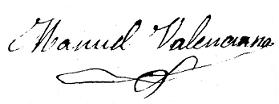 Manuel Valenciano